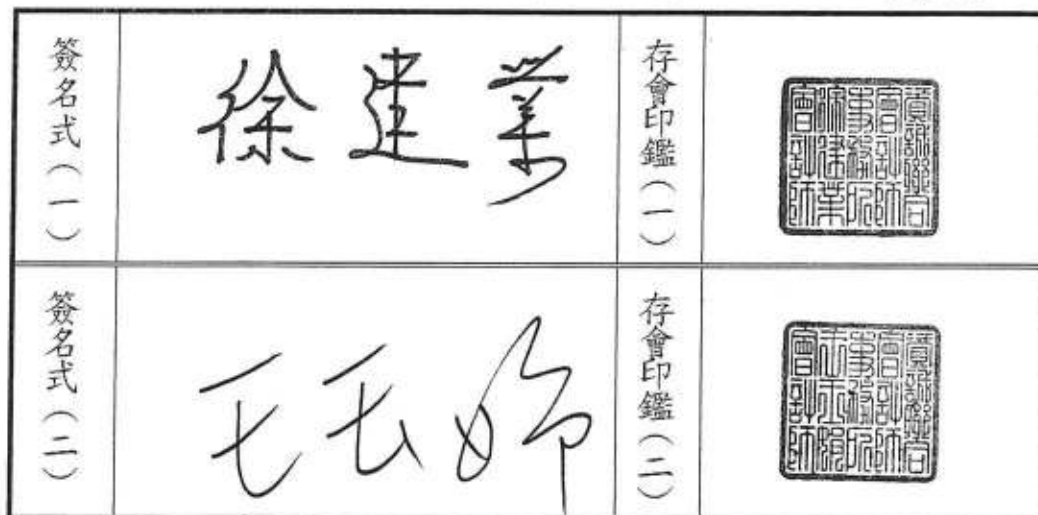 簽名式(一)
徐建業
存會印鑑(一)
資誠聯合
會計師
事務所
徐建業
會計師
簽名式(二)
存會印鑑(二)
資誠聯合
會計師
事務所
會計師